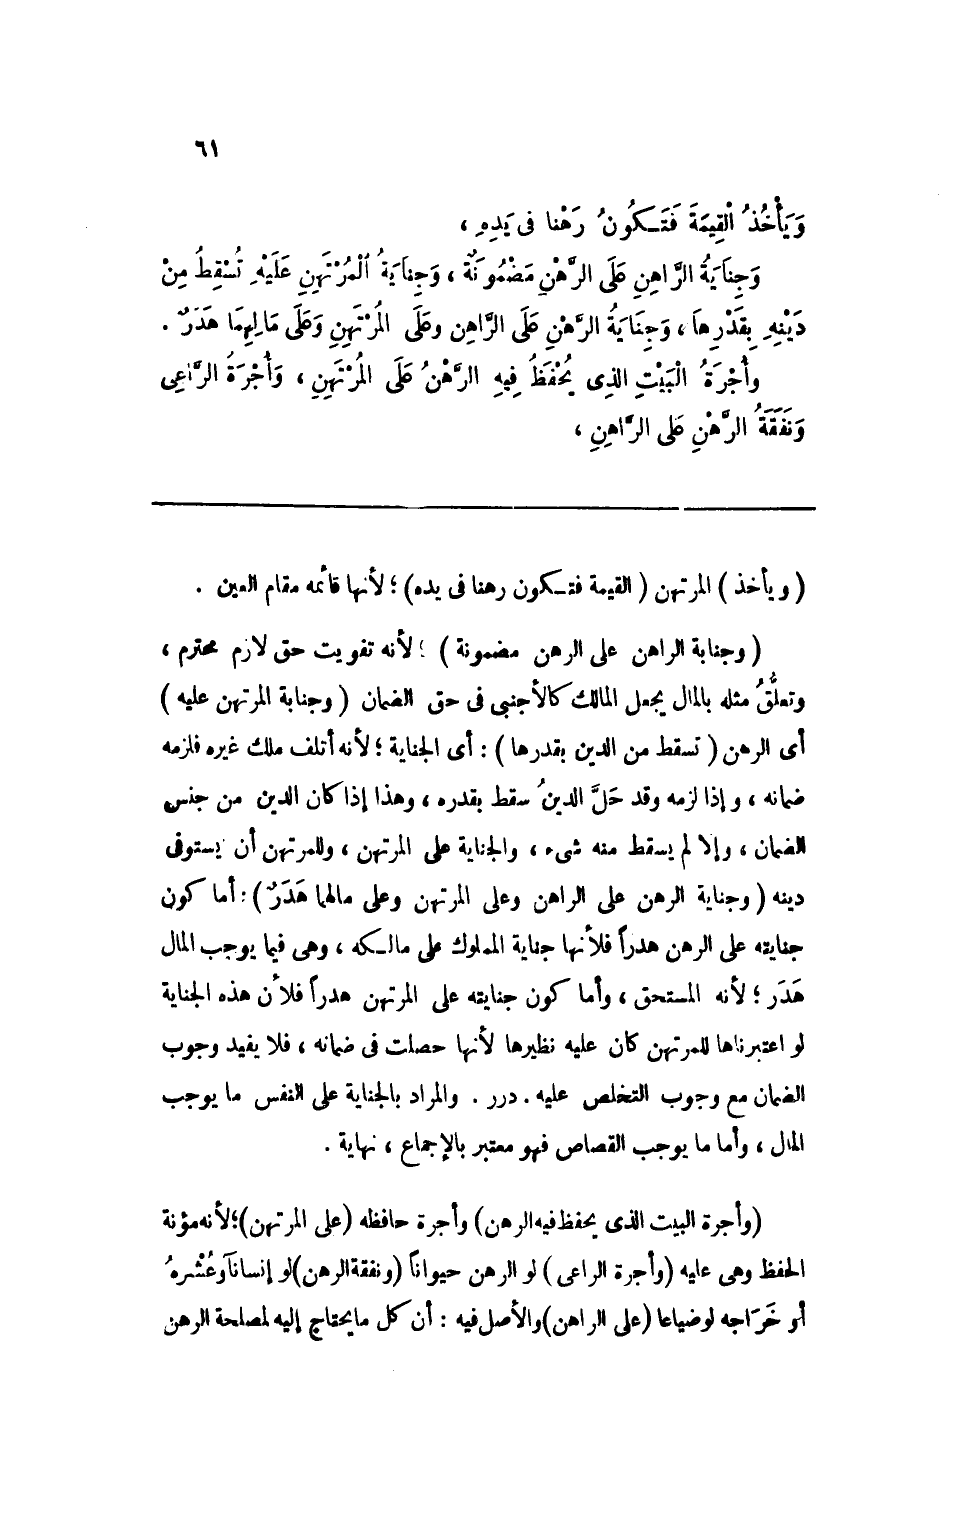 ٦١
وَيَأْخُذُ الْقِيمَةَ فَتَكُونُ رَهْنا فى يَدِهِ ،
وَجِنَايَةُ الرَّاهِنِ عَلَى الرَّهْنِ مَضْمُونَةٌ ، وَجِنَايَةُ الْمُرْتَهِنِ عَلَيْهِ تُسْقِطُ مِنْ
دَيْنِهِ بِقَدْرِهاَ ، وَجِنَايَةُ الرَّهْنِ عَلَى الرَّاهِنِ وعَلَى الْمُرْتَهِنِ وَعَلَى مَالِهِمَا هَدَرٌ .
وأُجْرَةُ الْبَيْتِ الذِى يُحْفَظُ فِيهِ الرَّهْنُ عَلَى الْمُرْتَهِنِ ، وَأُجْرَةُ الرَّاعِى
وَنَفَقَةُ الرَّهْنِ عَلَى الرَّاهِنِ ،
( ويأخذ ) المرتهن ( القيمة فتكون رهنا فى يده) ؛ لأنها قائمه مقام العين .
( وجناية الراهن على الرهن مضمونة ) ؛ لأنه تفويت حق لازم محترم ،
وتعلُّقُ مثله بالمال يجعل المالك كالأجنبى فى حق الضمان ( وجناية المرتهن عليه )
أى الرهن ( تسقط من الدين بقدرها ) : أى الجناية ؛ لأنه أتلف ملك غيره فلزمه
ضمانه ، وإذا لزمه وقد حَلَّ الدينُ سقط بقدره ، وهذا إذا كان الدين من جنس
الضمان ، وإلا لم يسقط منه شىء ، والجناية على المرتهن ، وللمرتهن أن يستوفى
دينه ( وجناية الرهن على الراهن وعلى المرتهن وعلى مالهما هَدَرٌ ) : أما كون
جنايته على الرهن هدراً فلأنها جناية المملوك على مالكه ، وهى فيما يوجب المال
هَدَر ؛ لأنه المستحق ، وأما كون جنايته على المرتهن هدراً فلأن هذه الجناية
لو اعتبرناها للمرتهن كان عليه نظيرها لأنها حصلت فى ضمانه ، فلا يفيد وجوب
الضمان مع وجوب التخلص عليه . درر . والمراد بالجناية على النفس ما يوجب
المال ، وأما ما يوجب القصاص فهو معتبر بالإجماع ، نهاية .
(وأجرة البيت الذى يحفظ فيه الرهن) وأجرة حافظه (على المرتهن)؛ لأنه مؤنة
الحفظ وهى عليه (وأجرة الراعى) لو الرهن حيواناً (ونفقة الرهن) لو إنساناً وعُشْرهُ
أو خَرَاجه لو ضياعا (على الراهن) والأصل فيه : أن كل ما يحتاج إليه لمصلحة الرهن